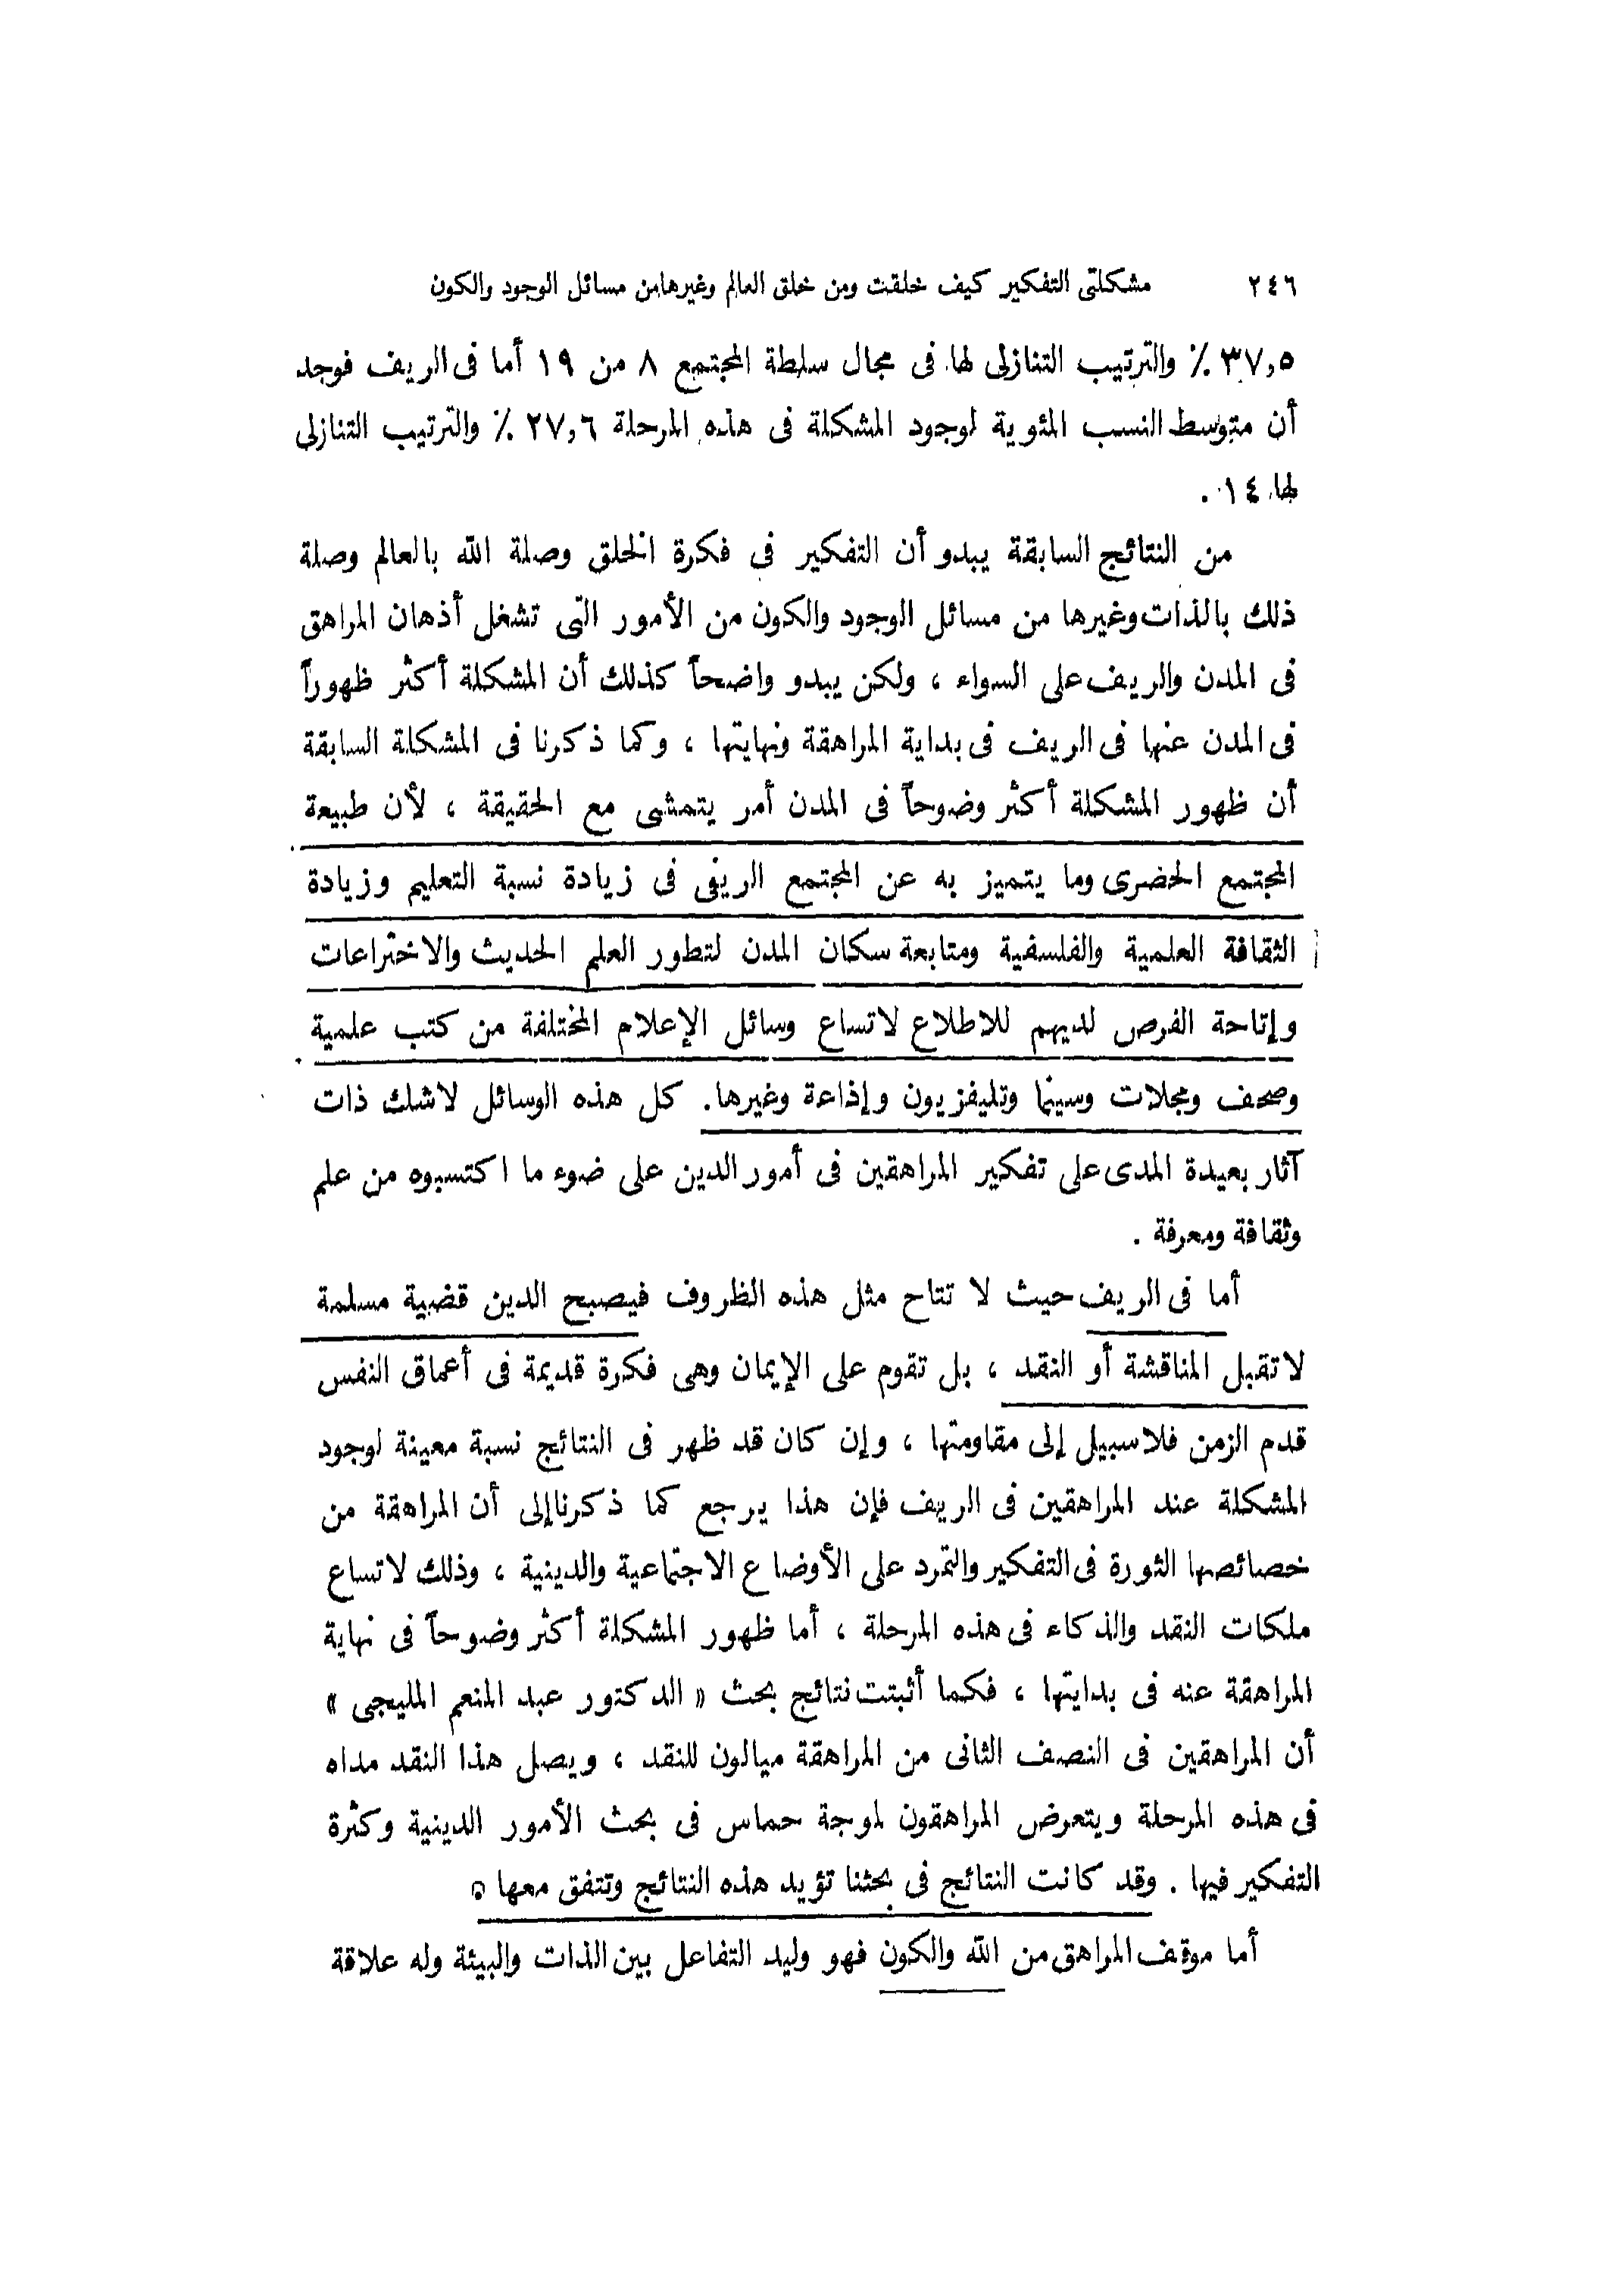 ٢٤٦ مشكلتى التفكير كيف خلقت ومن خلق العالم وغيرها من مسائل الوجود والكون
٣٧,٥ ٪ والترتيب التنازلى لها فى مجال سلطة المجتمع ٨ من ١٩ أما فى الريف فوجد
أن متوسط النسب المئوية لوجود المشكلة فى هذه المرحلة ٢٧,٦ ٪ والترتيب التنازلى
لها ١٤ .
من النتائج السابقة يبدو أن التفكير فى فكرة الخلق وصلة الله بالعالم وصلة
ذلك بالذات وغيرها من مسائل الوجود والكون من الأمور التى تشغل أذهان المراهق
فى المدن والريف على السواء ، ولكن يبدو واضحاً كذلك أن المشكلة أكثر ظهوراً
فى المدن عنها فى الريف فى بداية المراهقة ونهايتها ، وكما ذكرنا فى المشكلة السابقة
أن ظهور المشكلة أكثر وضوحاً فى المدن أمر يتمشى مع الحقيقة ، لأن طبيعة
المجتمع الحضرى وما يتميز به عن المجتمع الريفى فى زيادة نسبة التعليم وزيادة
الثقافة العلمية والفلسفية ومتابعة سكان المدن لتطور العلم الحديث والاختراعات
وإتاحة الفرص لديهم للاطلاع لاتساع وسائل الإعلام المختلفة من كتب علمية
وصحف ومجلات وسينما وتليفزيون وإذاعة وغيرها. كل هذه الوسائل لاشك ذات
آثار بعيدة المدى على تفكير المراهقين فى أمور الدين على ضوء ما اكتسبوه من علم
وثقافة ومعرفة .
أما فى الريف حيث لا تتاح مثل هذه الظروف فيصبح الدين قضية مسلمة
لا تقبل المناقشة أو النقد ، بل تقوم على الإيمان وهى فكرة قديمة فى أعماق النفس
قدم الزمن فلا سبيل إلى مقاومتها ، وإن كان قد ظهر فى النتائج نسبة معينة لوجود
المشكلة عند المراهقين فى الريف فإن هذا يرجع كما ذكرنا إلى أن المراهقة من
خصائصها الثورة فى التفكير والتمرد على الأوضاع الاجتماعية والدينية ، وذلك لاتساع
ملكات النقد والذكاء فى هذه المرحلة ، أما ظهور المشكلة أكثر وضوحاً فى نهاية
المراهقة عنه فى بدايتها ، فكما أثبتت نتائج بحث « الدكتور عبد المنعم المليجى »
أن المراهقين فى النصف الثانى من المراهقة ميالون للنقد ، ويصل هذا النقد مداه
فى هذه المرحلة ويتعرض المراهقون لموجة حماس فى بحث الأمور الدينية وكثرة
التفكير فيها . وقد كانت النتائج فى بحثنا تؤيد هذه النتائج وتتفق معها .
أما موقف المراهق من الله والكون فهو وليد التفاعل بين الذات والبيئة وله علاقة